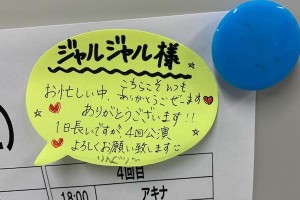 ジャルジャル様
こちらこそいつも
お忙しい中、ありがとうございます
ありがとうございます!!
1日長いですが、4回公演
よろしくお願い致します
4回目
18:00 アキナ